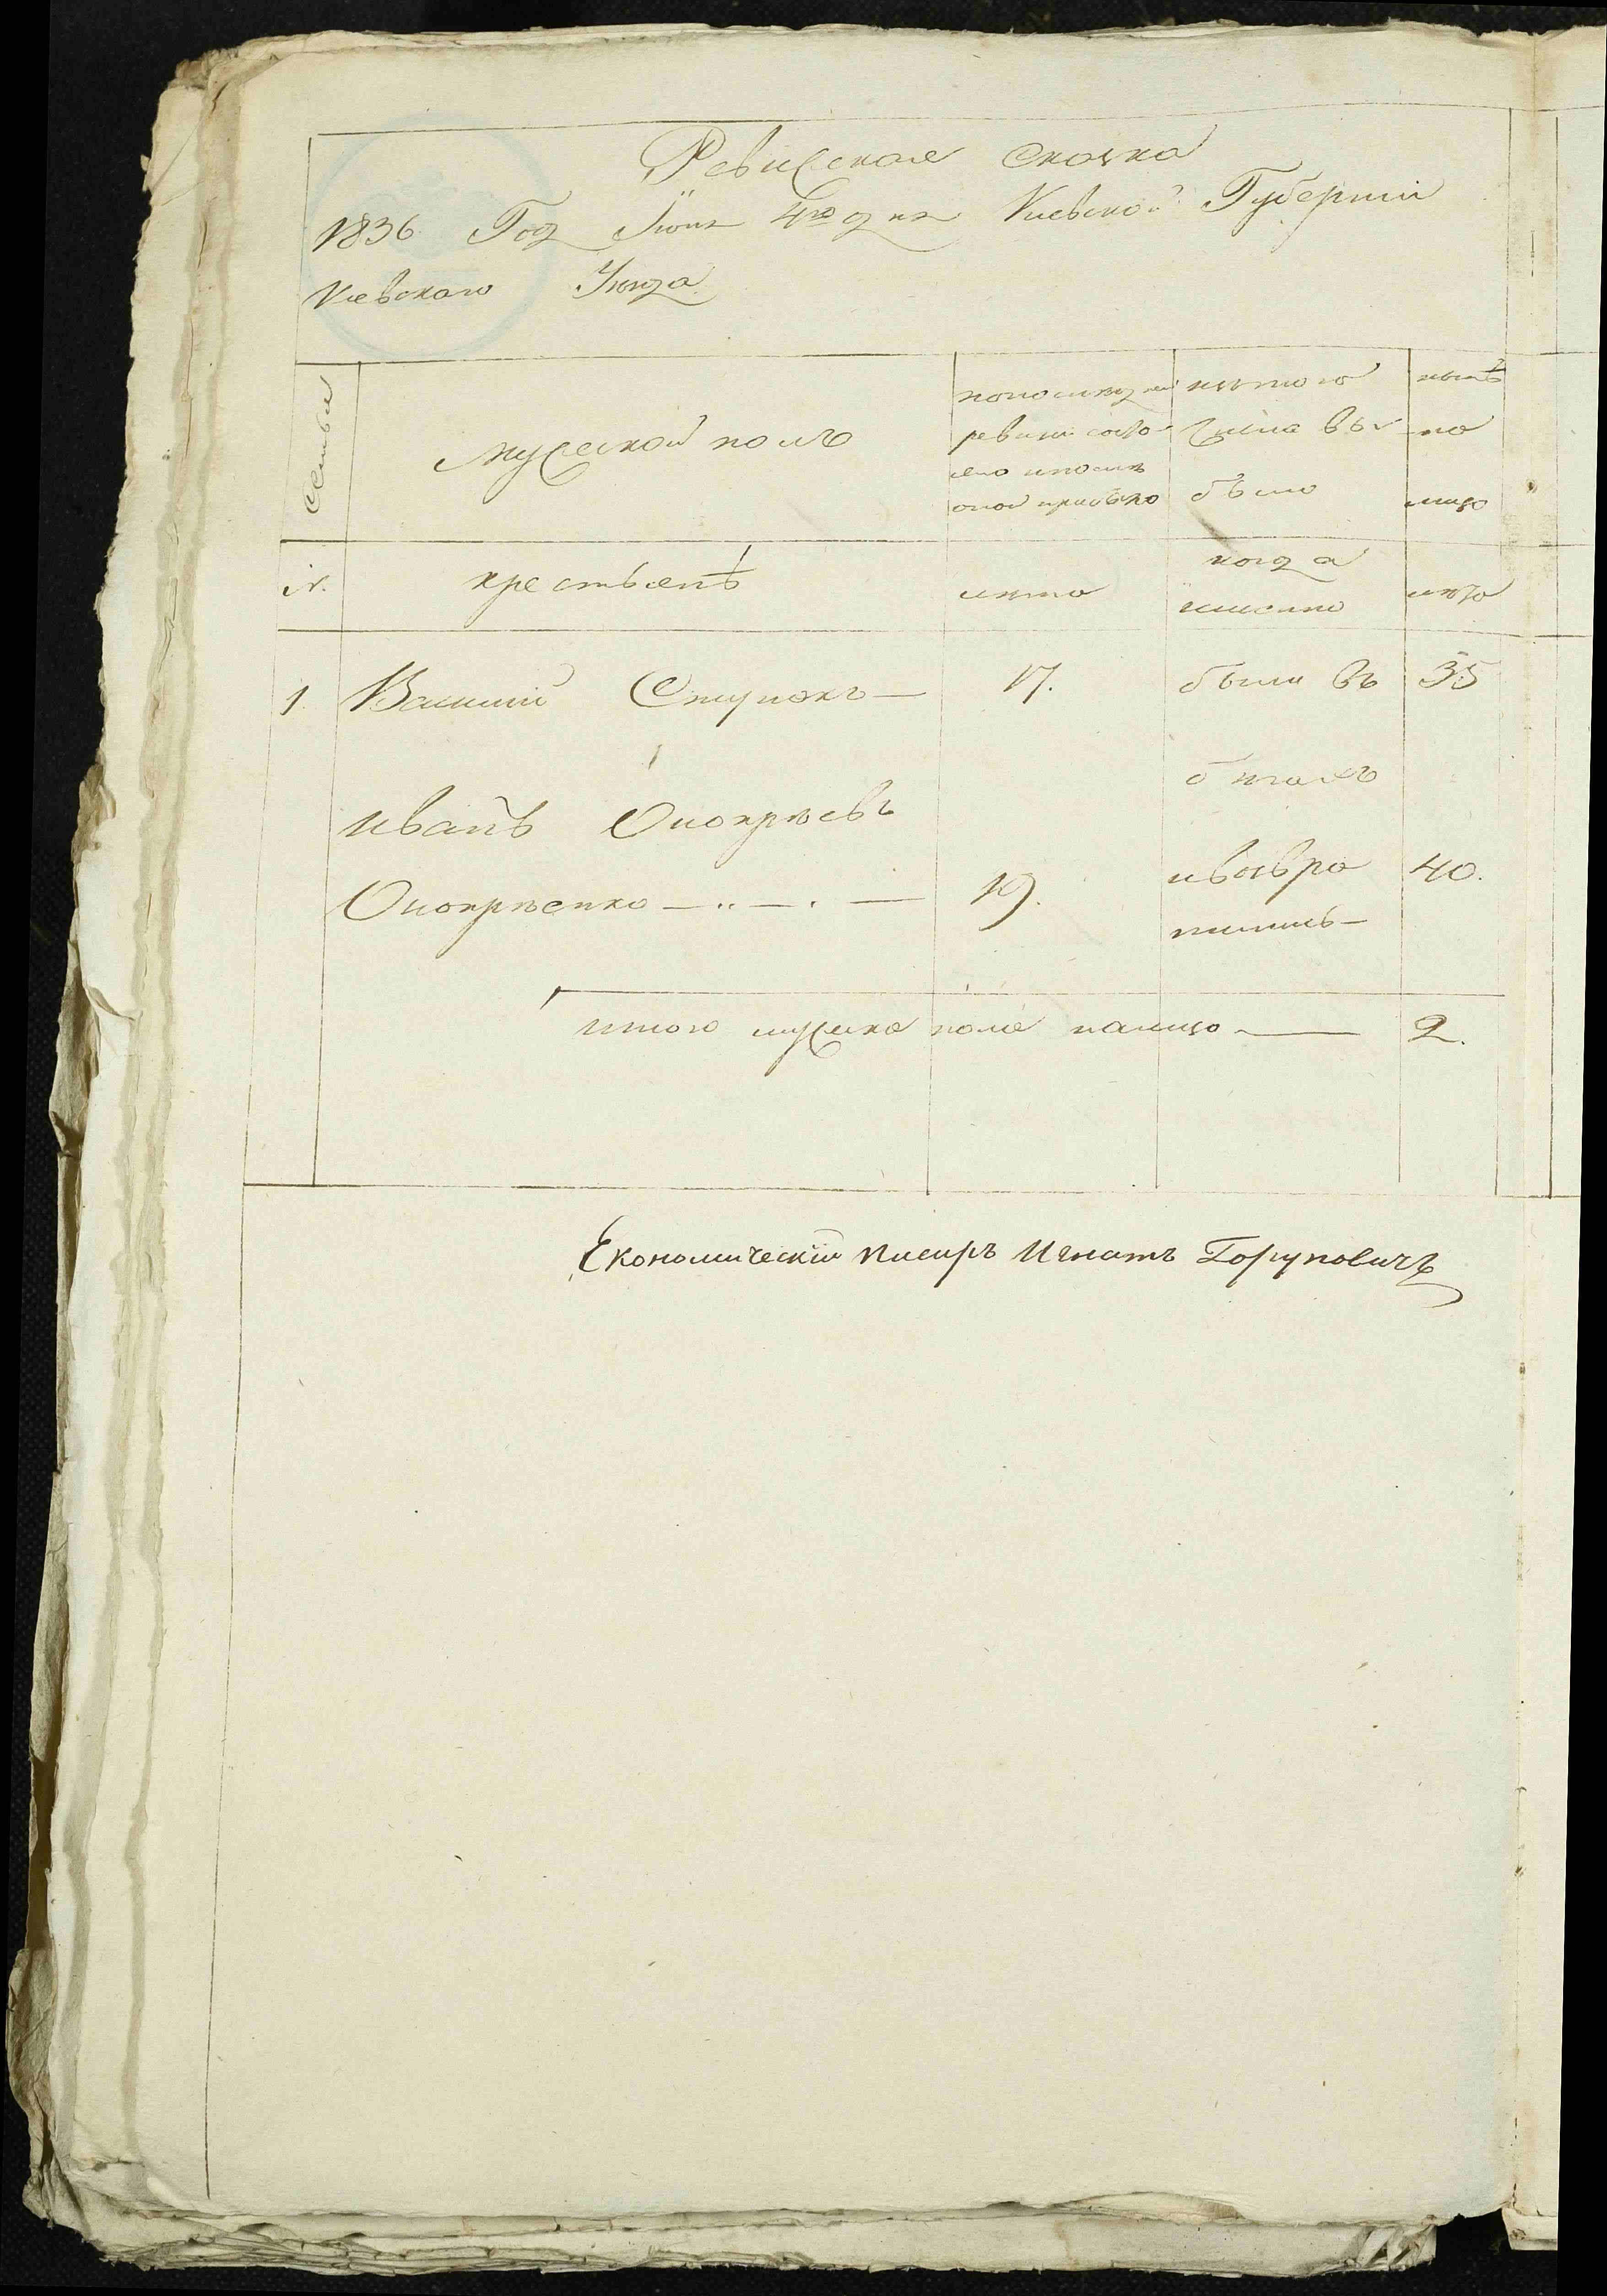 Ревизская Сказка
1836 Года Іюня 4го дня Киевской Губерніи
Киевскаго Уезда
семьи
мужской полъ
попоследней ревизіи состояло ипосле оной прибыло
изтого числа выбыло
ныне налицо
N.
крестьяне
лета
когда имянно
лета
1 Василий Ступакъ — 17. были въ 35
бегахъ
Иванъ Оноприевъ
Оноприенко — 19. ивозвра 40.
тились —
итого мужска пола налицо — 2.
Економическій писаръ Игнатъ Горуновичъ